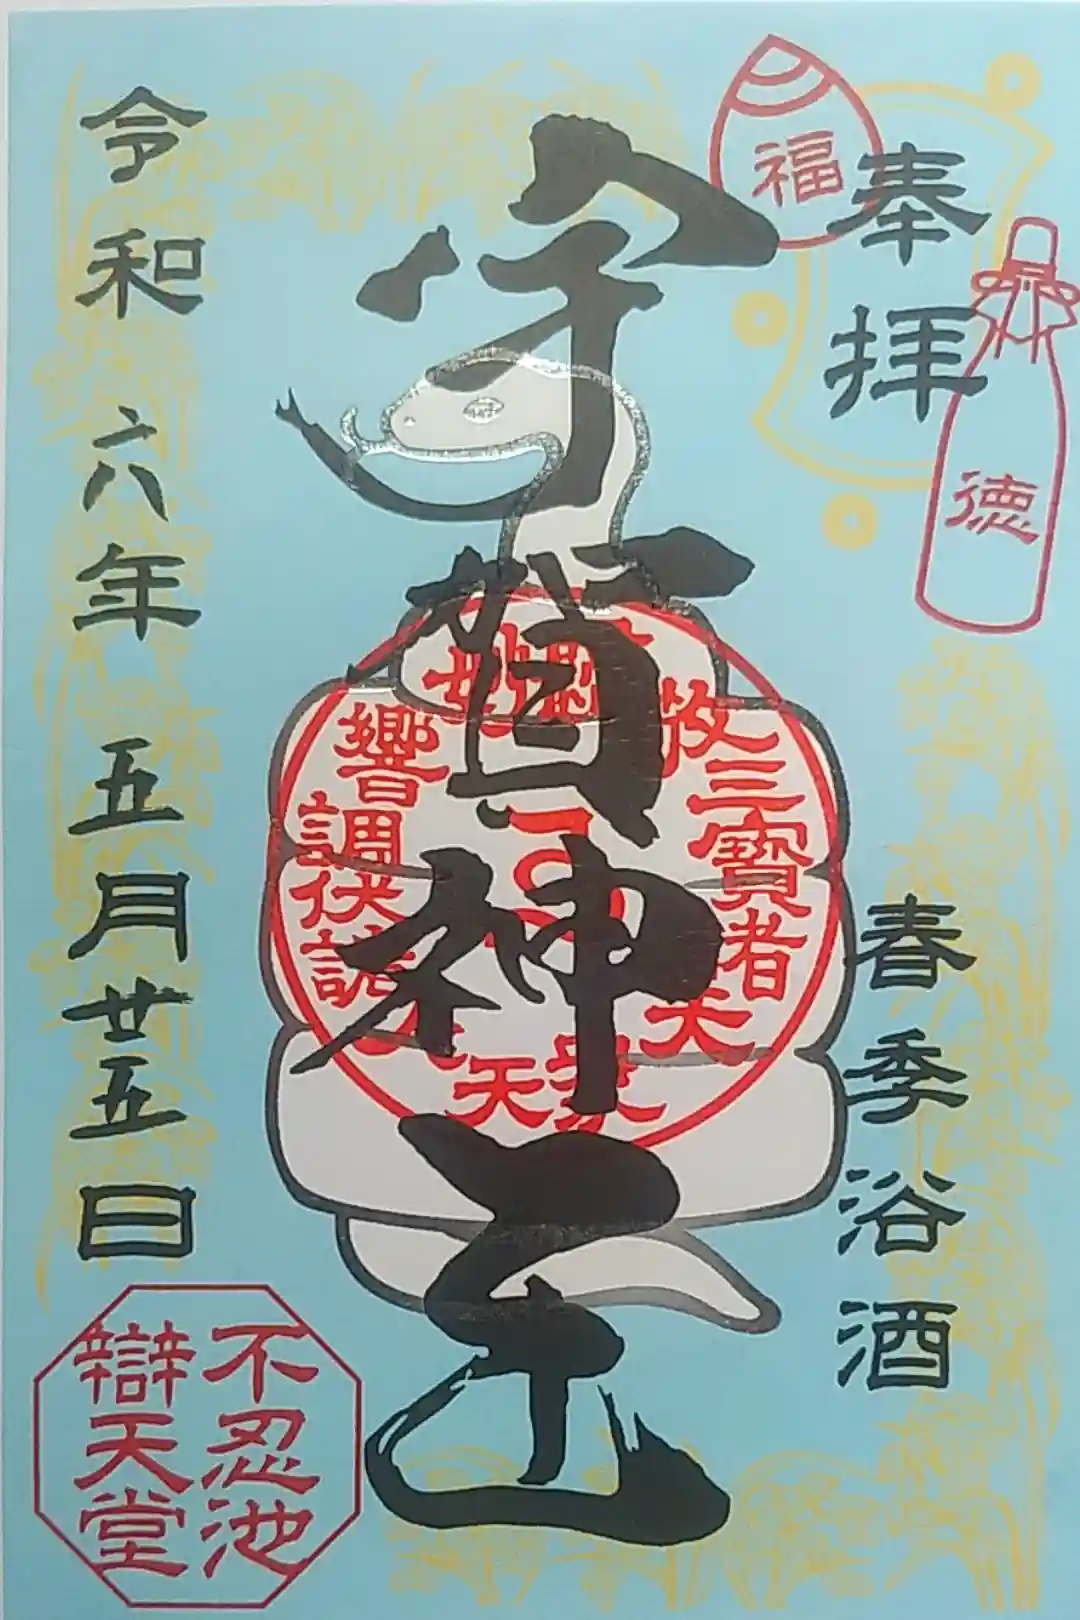 奉拝
福
徳
春季浴酒
宇賀神王
三寶者
響調伏諸
令和六年五月廿五日
不忍池
辯天堂